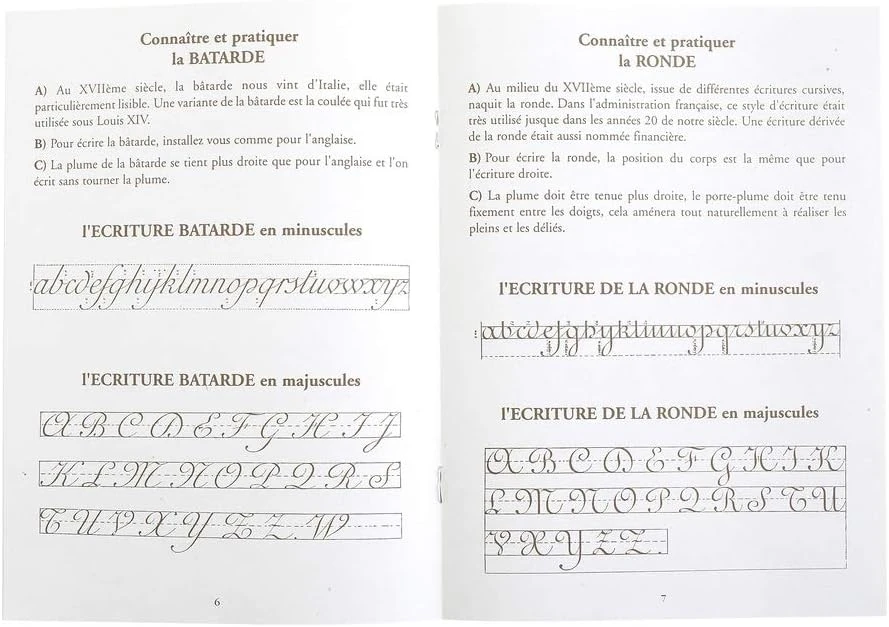 Connaître et pratiquer
la BATARDE
A) Au XVIIème siècle, la bâtarde nous vint d'Italie, elle était
particulièrement lisible. Une variante de la bâtarde est la coulée qui fut très
utilisée sous Louis XIV.
B) Pour écrire la bâtarde, installez vous comme pour l'anglaise.
C) La plume de la bâtarde se tient plus droite que pour l'anglaise et l'on
écrit sans tourner la plume.
l'ECRITURE BATARDE en minuscules
abcdefghijklmnopqrstuvwxyz
l'ECRITURE BATARDE en majuscules
A B C D E F G H I J
K L M N O P Q R S
T U V X Y Z Z W
6
Connaître et pratiquer
la RONDE
A) Au milieu du XVIIème siècle, issue de différentes écritures cursives,
naquit la ronde. Dans l'administration française, ce style d'écriture était
très utilisé jusque dans les années 20 de notre siècle. Une écriture dérivée
de la ronde était aussi nommée financière.
B) Pour écrire la ronde, la position du corps est la même que pour
l'écriture droite.
C) La plume doit être tenue plus droite, le porte-plume doit être tenu
fixement entre les doigts, cela aménera tout naturellement à réaliser les
pleins et les déliés.
l'ECRITURE DE LA RONDE en minuscules
abcdefghijklmnopqrstuvxyz
l'ECRITURE DE LA RONDE en majuscules
A B C D E F G H I K
L M N O P Q R S T U
V X Y Z Z
7